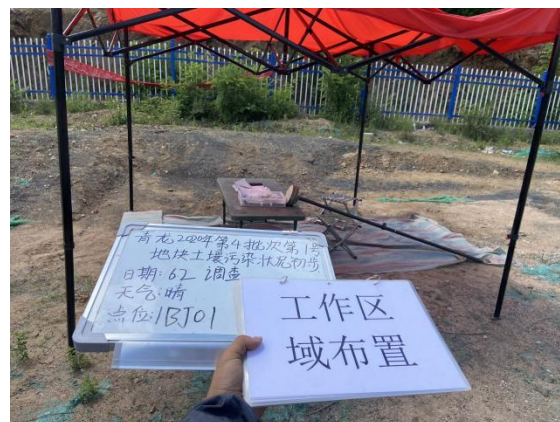 青龙2020年第4批次第1号
地块土壤污染状况初步
日期:6.2 调查
天气:晴
点位:1BJ01
工作区
域布置